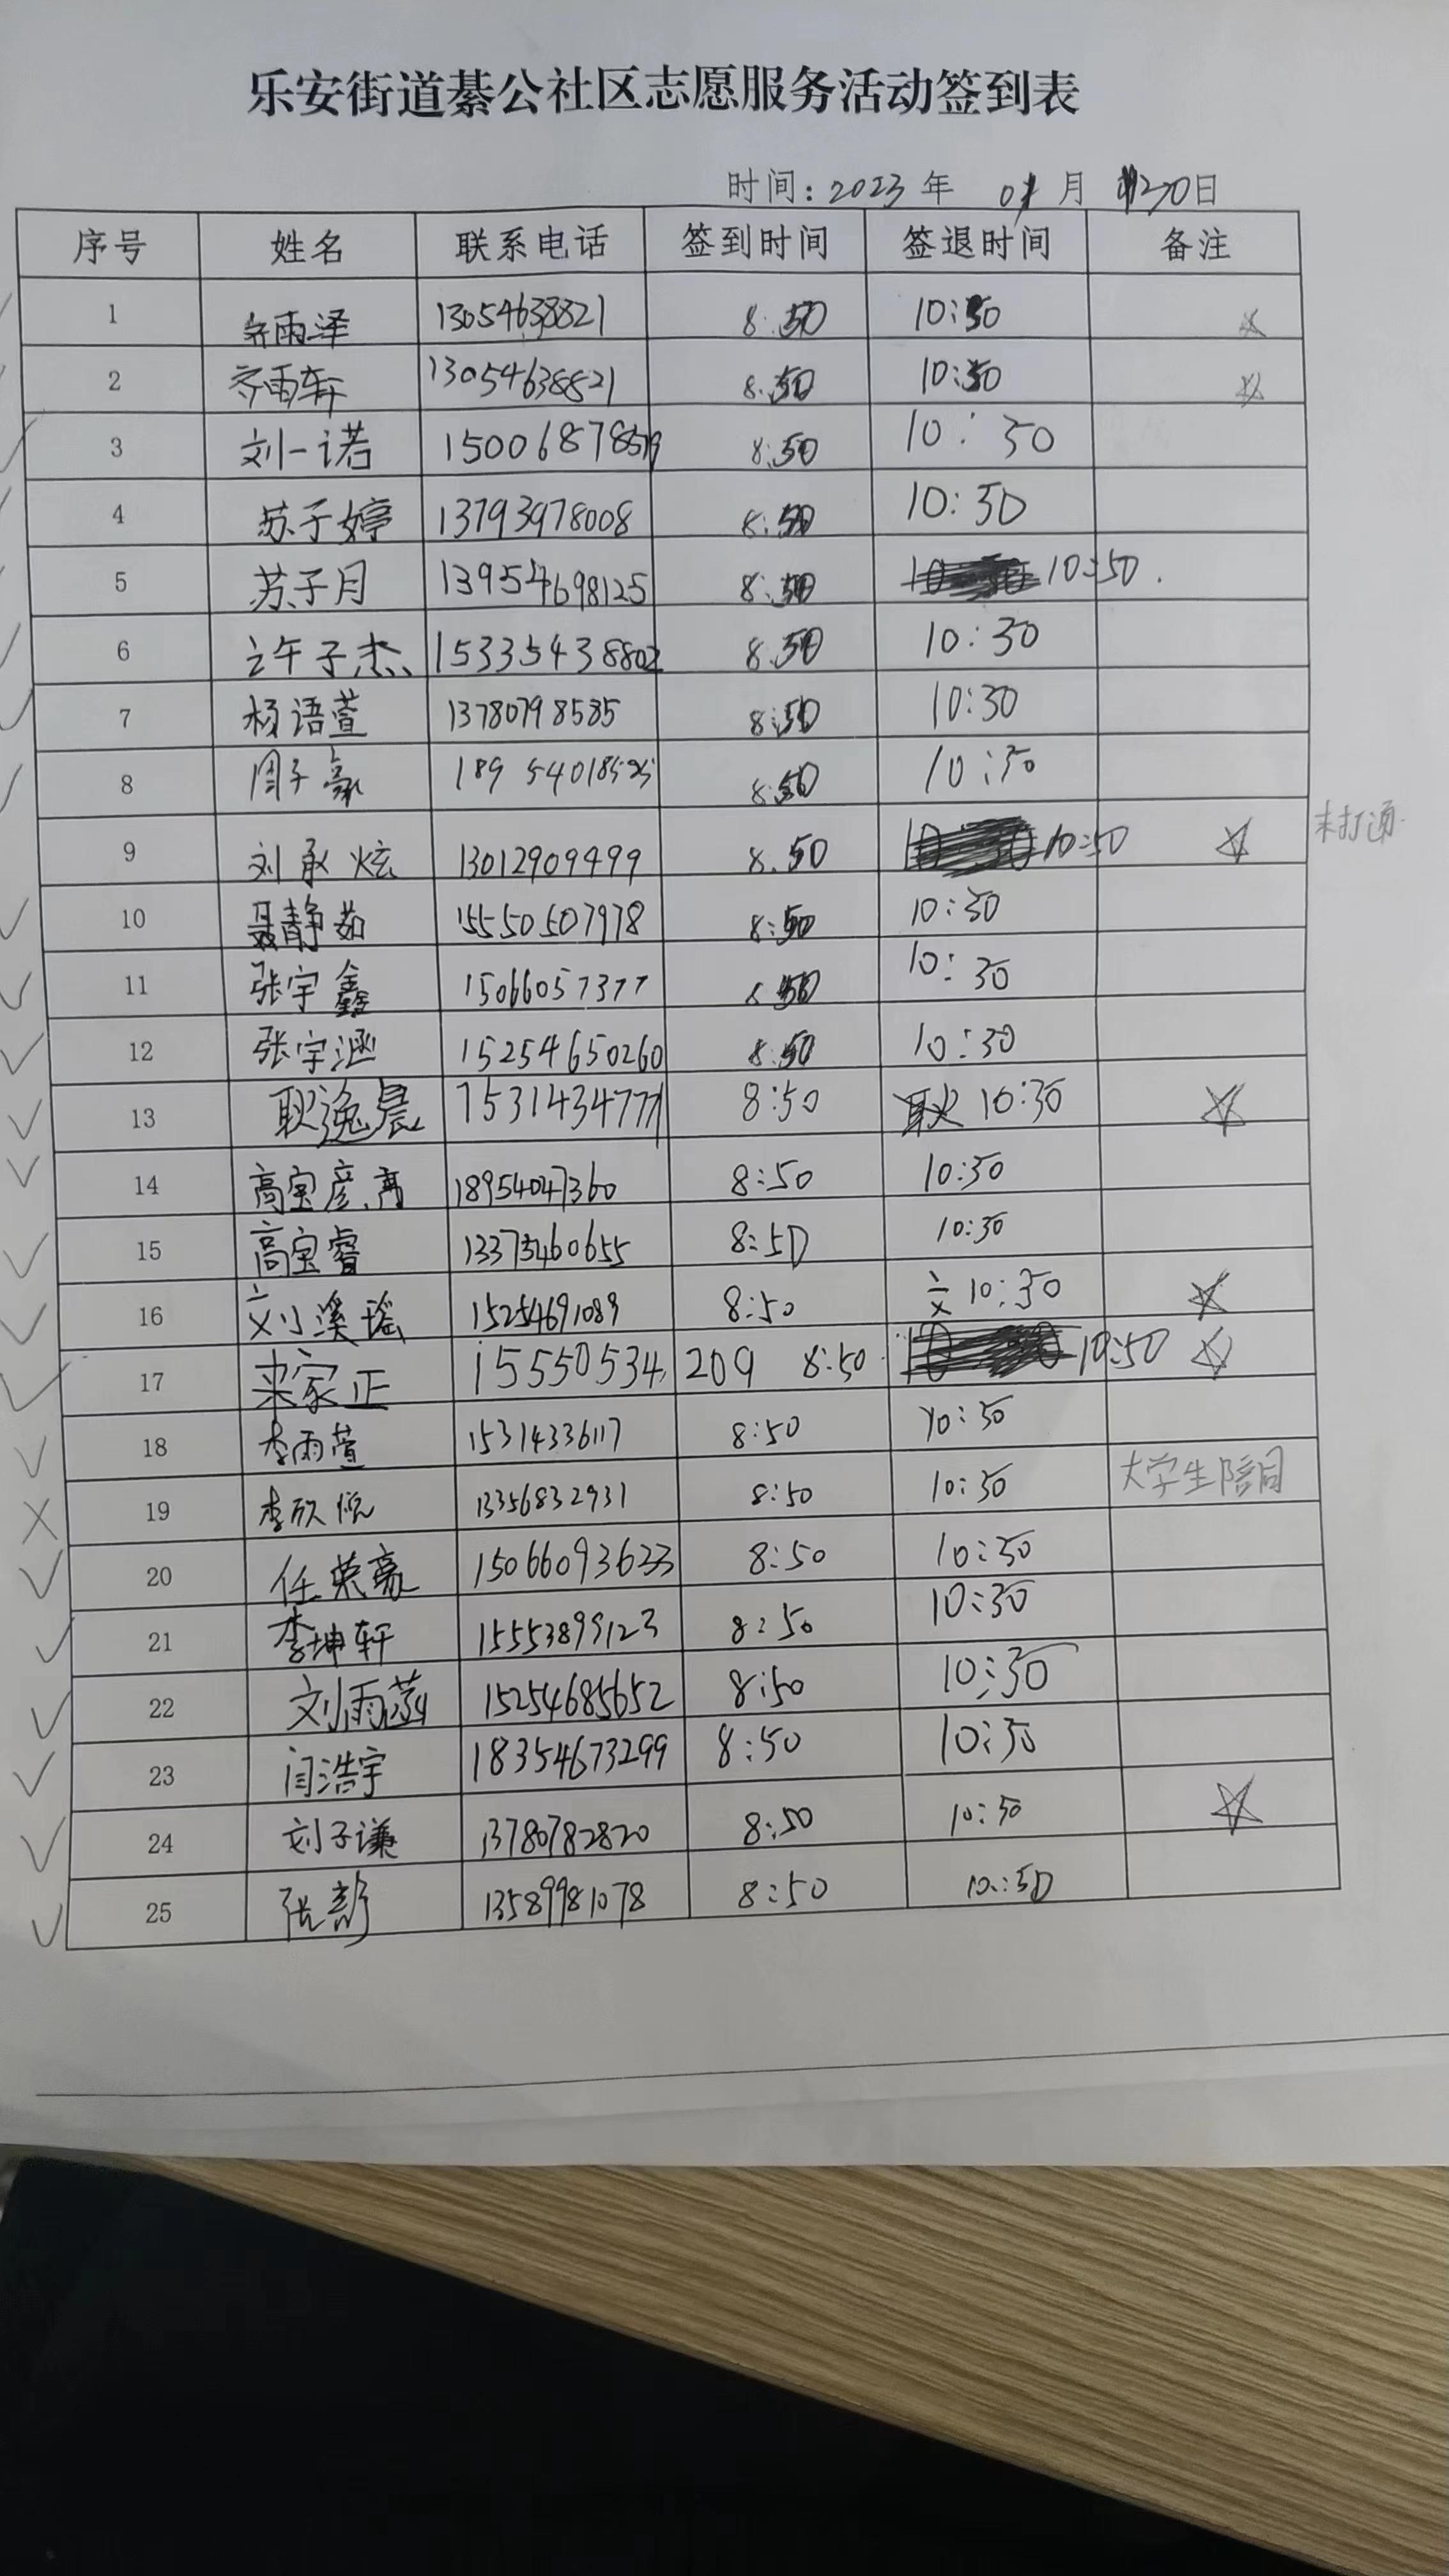 乐安街道綦公社区志愿服务活动签到表
时间：2023 年 01 月 20日
序号 姓名 联系电话 签到时间 签退时间 备注
1 齐雨泽 13054638821 8:50 10:50
2 齐雨轩 13054638821 8:50 10:50
3 刘一诺 150068785 8:50 10:50
4 苏子婷 13793978008 8:50 10:50
5 苏子月 13954698125 8:50 10:50
6 许子杰 15335438802 8:50 10:30
7 杨语萱 13780798585 8:50 10:30
8 周子豪 18954018525 8:50 10:50
9 刘承炫 13012909499 8:50 10:50 ☆ 未打通
10 聂静茹 15550507978 8:50 10:50
11 张宇鑫 15066057377 8:50 10:30
12 张宇涵 15254650260 8:50 10:30
13 耿逸晨 15314347771 8:50 10:30 ☆
14 高宝彦 18954047360 8:50 10:50
15 高宝睿 13373460655 8:50 10:30
16 刘溪瑶 15254691089 8:50 10:50 ☆
17 宋家正 15550534209 8:50 10:50 ☆
18 李雨萱 15314336117 8:50 10:50
19 李欣悦 13356832931 8:50 10:50 大学生陪同
20 任荣豪 15066093623 8:50 10:50
21 李坤轩 15553899123 8:50 10:30
22 刘雨菡 15254685652 8:50 10:30
23 闫浩宇 18354673299 8:50 10:50
24 刘子谦 13780782820 8:50 10:50 ☆
25 张彭 13589981078 8:50 10:50